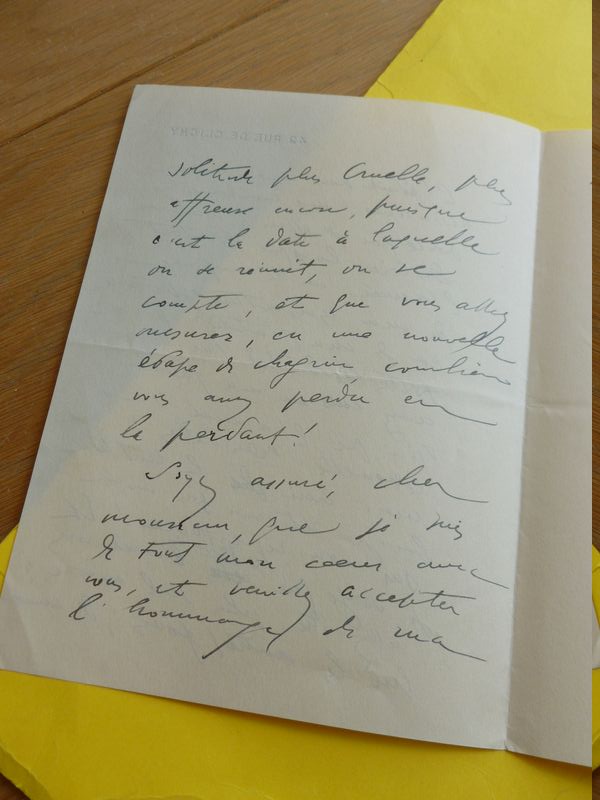 49 RUE DE CLICHY
solitude plus cruelle, plus
affreuse encore, puisque
c'est la date à laquelle
on se réunit, on se
compte, et que vous allez
mesurer, en une nouvelle
étape de chagrin, combien
vous avez perdu en
la perdant!
Soyez assuré, cher
monsieur, que je suis
de tout mon coeur avec
vous, et veuillez accepter
l'hommage de ma